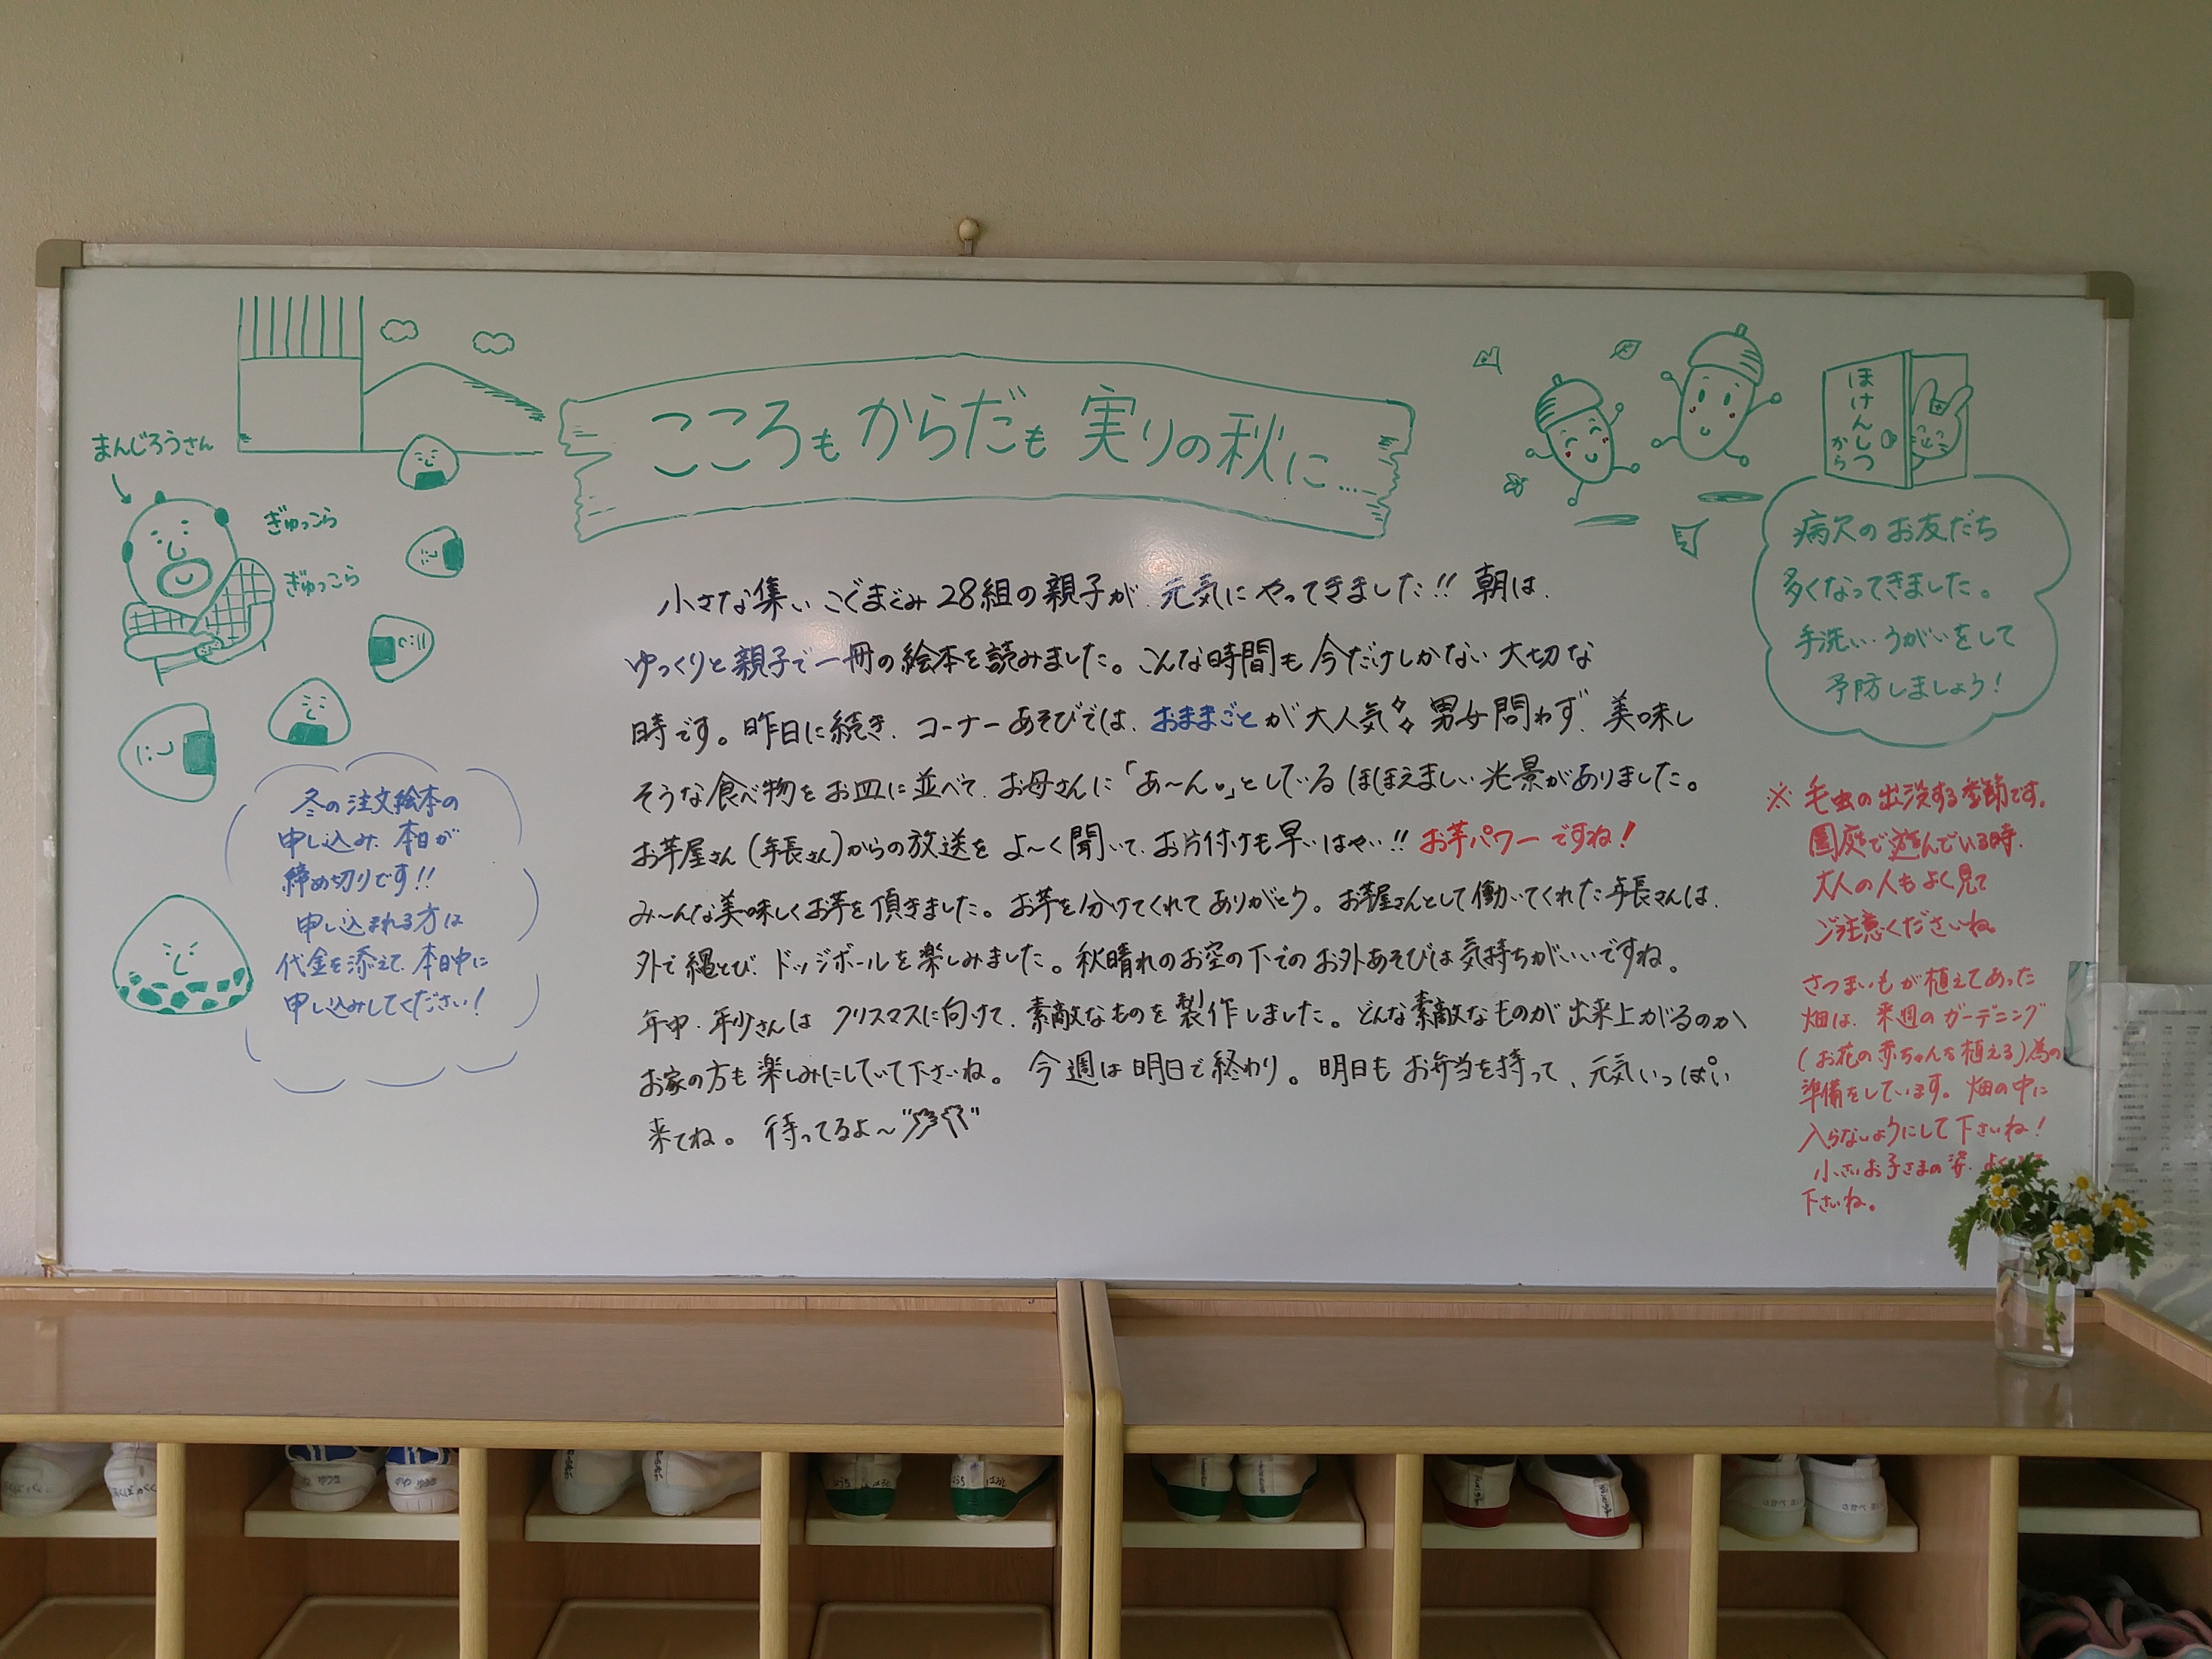 こころもからだも 実りの秋に…
まんじろうさん
ぎゅっこら
ぎゅっこら
冬の注文絵本の
申し込み、本日が
締め切りです!!
申し込まれる方は
代金を添えて、本日中に
申し込みしてください!
小さな集い こぐまぐみ 28組の親子が、元気にやってきました!! 朝は、
ゆっくりと親子で一冊の絵本を読みました。こんな時間も今だけしかない大切な
時です。昨日に続き、コーナーあそびでは、おままごとが大人気 男女問わず、美味し
そうな食べ物をお皿に並べて、お母さんに「あ〜ん。」としているほほえましい光景がありました。
お芋屋さん(年長さん)からの放送をよ〜く聞いて、お片付けも早いはやい!! お芋パワーですね!
み〜んな美味しくお芋を頂きました。お芋を分けてくれてありがとう。お芋屋さんとして働いてくれた年長さんは、
外で縄とび、ドッジボールを楽しみました。秋晴れのお空の下でのお外あそびは気持ちがいいですね。
年中・年少さんは クリスマスに向けて、素敵なものを製作しました。どんな素敵なものが出来上がるのか、
お家の方も楽しみにしていて下さいね。 今週は明日で終わり。明日もお弁当を持って、元気いっぱい
来てね。 待ってるよ〜
ほけんしつ
から
病欠のお友だち
多くなってきました。
手洗い・うがいをして
予防しましょう!
※ 毛虫の出没する季節です。
園庭で遊んでいる時、
大人の人もよく見て
ご注意くださいね。
さつまいもが植えてあった
畑は、来週のガーデニング
(お花の赤ちゃんを植える)為の
準備をしています。畑の中に
入らないようにして下さいね!
小さいお子さまの姿、よく
下さいね。